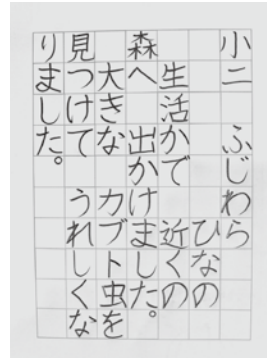 小二　ふじわら
ひなの
生活かで　近くの
森へ　出かけました。
大きな　カブト虫を
見つけて　うれしくな
りました。